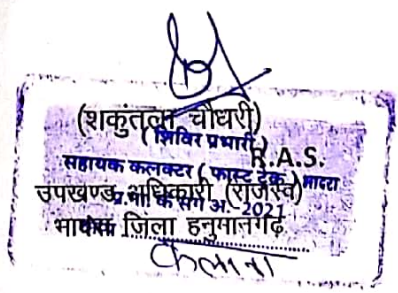 (शकुंतला चौधरी)
(शिविर प्रभारी)
R.A.S.
सहायक कलक्टर (फास्ट ट्रेक) भादरा
उपखण्ड अधिकारी (राजस्व)
प्र.गां. के संग अ.-2021
जिला हनुमानगढ़